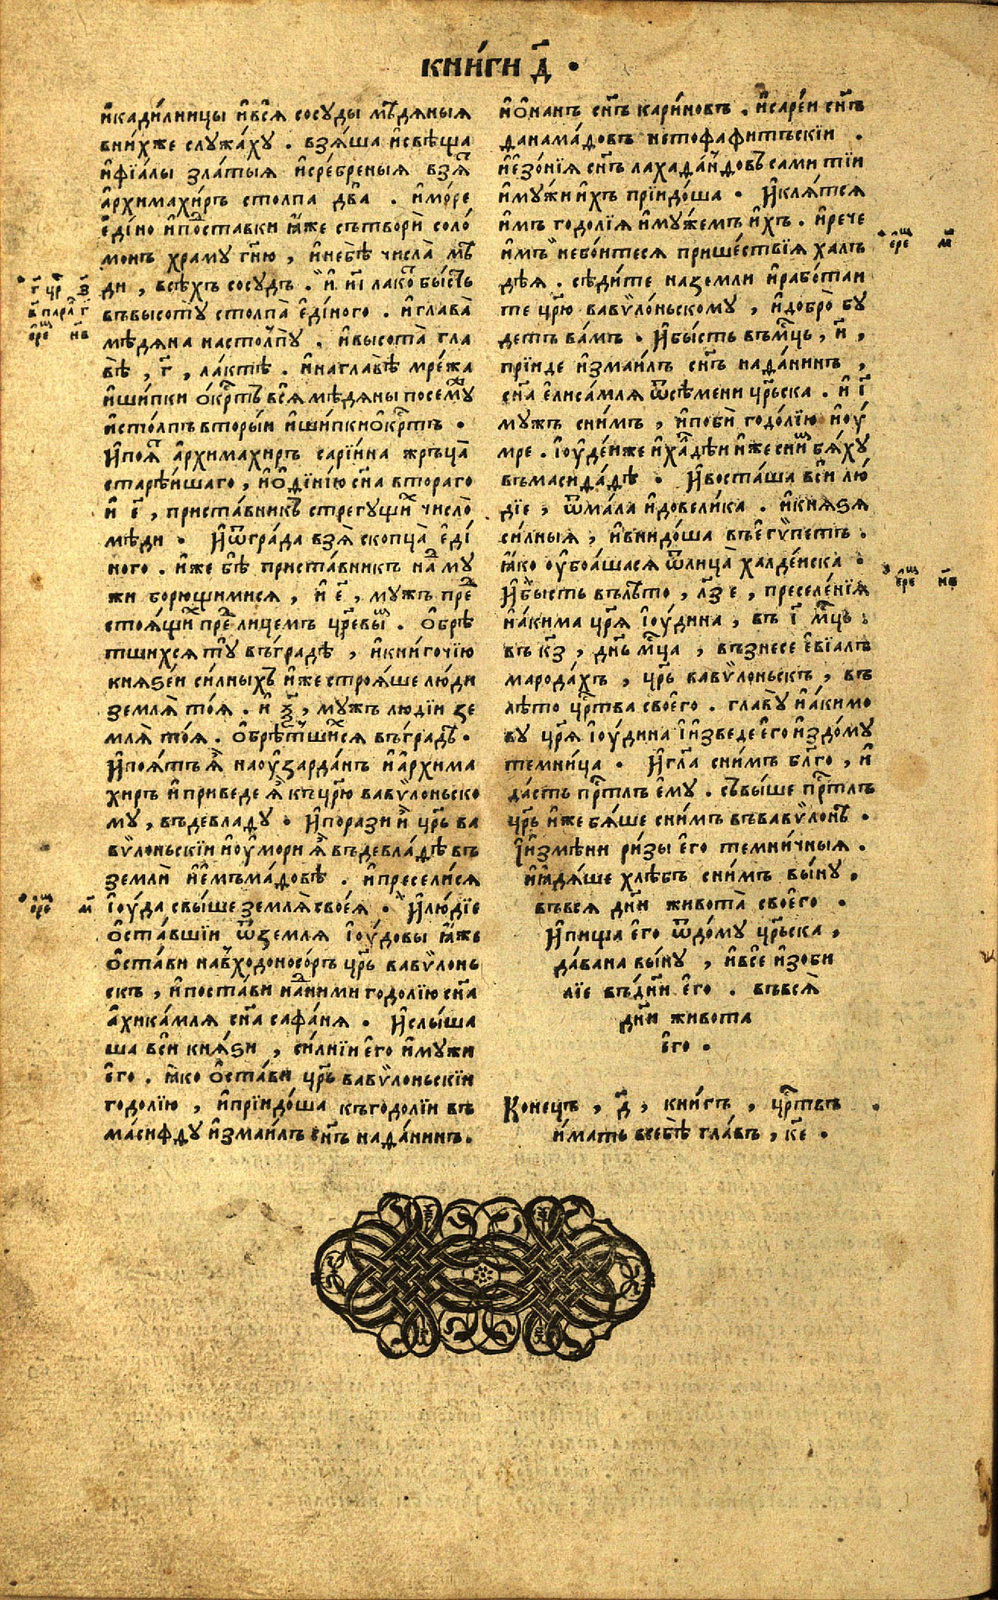 КНИ́ГИ Д҃ .
и҆кади́лницы и҆вся̀ сосуды мѣ́дяныя
вни́хже служа́ху . взя́ша и҆свѣща
и҆фїа́лы зла́тыя и҆сре́бреныя взя̀
а҆рхимахи́ръ столпа два . и҆мо́ре
є҆ди́но и҆поставки ꙗ҆́же сътворѝ соло́
монъ храму гн҃ю , и҆небѣ̀ числа̀ мѣ́
ди , всѣ́хъ сосу́дъ . и҆ и҃і лако́т бы́сть
въвысоту̀ столпа̀ є҆ди́ного . и҆глава̀
мѣ́дяна настолпу̀ . и҆высота̀ гла
вѣ̀ , г҃ , ла́ктѣ . и҆наглавѣ̀ мре́жа
и҆ши́пки о҆́крⷭтъ вся̀ мѣ́дяны посему̀
и҆сто́лпъ вторы́и и҆ши́пки о҆́крⷭтъ .
И҆поя̀т а҆рхимахиръ сарїи́на жръца̀
старѣ́ишаго , и҆со́фѡнїю сн҃а втораго
и҆ г҃ , приста́вникъ стрегущих число̀
мѣ́ди . И҆ѿгра́да взя̀ скопца̀ є҆ди́
ного . и҆же бѣ̀ приста́вникъ над му
жи борющимися , и҆ є҃ , мужъ пред
стоя́щих пред лицемъ цр҃евым . О҆брѣ́
тшихся ту въгра́дѣ , и҆книгочїю
князе́и си́лныхъ и҆же строя́ше лю́ди
земля̀ тоя̀ . и҆ ѯ҃ , мужъ людїи зе
мля̀ тоя̀ . о҆брѣ́тшихся въгра́дѣ .
И҆поя́тъ я҆̀ наоузарда́нъ и҆а҆рхима
хиръ и҆приведе я҆̀ къцр҃ю вавѷлоньско
му , въдевладу . И҆порази и҆̀ цр҃ь ва
вѷлоньскїи и҆оу҆мори я҆̀ въдевла́дѣ въ
землѝ и҆є҆мъма́довѣ . и҆преселися
і҆оу́да свы́ше земля̀ своея̀ . И҆лю́дїе
о҆ста́вшїи ѿземля і҆оу́довы ꙗ҆́же
о҆ста́ви навходоносо́ръ цр҃ь вавѷлонь
скъ , и҆поста́ви над ними годолїю сн҃а
а҆хика́мля сн҃а сафа́ня . И҆слы́ша
ша вси князи , си́лнїи є҆го и҆мужи
є҆го . ꙗ҆́ко о҆ста́ви цр҃ь вавѷлоньскїи
годолїю , и҆прїидо́ша къгодолїи въ
ма́сифду и҆змаи́лъ сн҃ъ нада́нинъ .
и҆о҆на́нъ сн҃ъ кари́новъ . и҆саре́и сн҃ъ
данама́довъ нетофафитѣ́скїи .
и҆є҆зо́нїя сн҃ъ лахада́ндовъ сами тїи
и҆му́жи и҆́хъ прїидо́ша . И҆кля́тся
и҆мъ годолїя и҆му́жемъ и҆́хъ . и҆рече
и҆́мъ небо́итеся прише́ствїя халъ
дѣ́я . сѣди́те наземли и҆рабо́таи
те цр҃ю вавѷло́ньскому , и҆добро̀ бу
детъ ва́мъ . И҆бы́сть въмцⷭь , и҃ ,
прїиде и҆змаи́лъ сн҃ъ нада́нинъ ,
сн҃а є҆лиса́мля ѿсѣ́мени цр҃ьска . и҆ і҃
мужъ сни́мъ , и҆побѝ годо́лїю и҆оу҆́
мре . і҆оу҆де́и же и҆халдѣи и҆же сним бя́ху
въмасида́дѣ . И҆воста́ша вси лю́
дїе , ѿма́ла и҆довели́ка . и҆князя
си́лныя , и҆внидо́ша въє҆гѷпетъ .
ꙗ҆́ко оу҆боа́шася ѿлица̀ халде́иска .
И҆бысть влѣто , л҃з е , преселе́нїя
и҆аки́ма цр҃я і҆оу́дина , въ і҃ мцⷭь .
въ к҃з , дн҃ь мцⷭа , възнесе є҆вїалъ
марода́хъ , цр҃ь вавѷлоньскъ , въ
лѣто црⷭтва своего . главу̀ и҆аки́мо
ву цр҃я і҆оу́дина и҆и҆зведе є҆го и҆здо́му
темни́ца . И҆гл҃а сни́мъ бл҃го , и҆
да́сть прⷭтлъ є҆му . свы́ше прⷭтлъ
цр҃ь и҆же бя́ше сни́мъ въвавѷло́нѣ .
И҆и҆змѣ́ни ри́зы є҆го темни́чныя .
и҆ꙗ҆дя́ше хлѣ́бъ сни́мъ вы́ну .
въвся дн҃и живота̀ своего .
И҆пища є҆го ѿдо́му цр҃ьска ,
да́вана вы́ну , и҆все и҆зоби
лїе въдн҃и є҆го . въвся̀
дн҃и живота
є҆го .
Коне́цъ , д҃ , кни́гъ , црⷭтвъ .
и҆́мать всебѣ̀ гла́въ , к҃е .
г҃ цр з҃
в҃ парл г҃
є҆рем н҃в
є҆рем м҃
є҆рем м҃
є҆рем н҃в